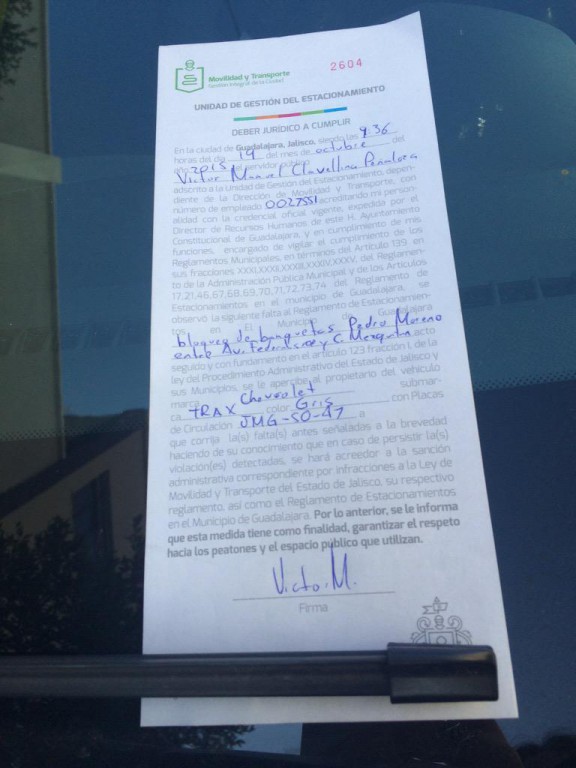 Movilidad y Transporte
Gestión Integral de la Ciudad
2604
UNIDAD DE GESTIÓN DEL ESTACIONAMIENTO
DEBER JURÍDICO A CUMPLIR
En la ciudad de Guadalajara, Jalisco, siendo las 9:36
horas del día 19 del mes de octubre del
año 2015 el servidor público
Victor Manuel Clavellina Peñaloza
adscrito a la Unidad de Gestión del Estacionamiento, depen-
diente de la Dirección de Movilidad y Transporte, con
número de empleado 0027551 acreditando mi person-
alidad con la credencial oficial vigente, expedida por el
Director de Recursos Humanos de este H. Ayuntamiento
Constitucional de Guadalajara, y en cumplimiento de mis
funciones, encargado de vigilar el cumplimiento de los
Reglamentos Municipales, en términos del Artículo 139 en
sus fracciones del Reglamen-
to de la Administración Pública Municipal y de los Artículos
17,21,46,67,68,69,70,71,72,73,74 del Reglamento de
Estacionamientos en el municipio de Guadalajara, se
observó la siguiente falta al Reglamento de Estacionamien-
tos en el Municipio de Guadalajara
bloqueo de banquetas Pedro Moreno
entre Av. Federalismo y C. Mezquitan acto
seguido y con fundamento en el artículo 123 fracción I, de la
ley del Procedimiento Administrativo del Estado de Jalisco y
sus Municipios, se le apercibe al propietario del vehículo
marca Chevrolet submar-
ca TRAX color Gris con Placas
de Circulación JMG-50-47 a
que corrija la(s) falta(s) antes señaladas a la brevedad
haciendo de su conocimiento que en caso de persistir la(s)
violación(es) detectadas, se hará acreedor a la sanción
administrativa correspondiente por infracciones a la Ley de
Movilidad y Transporte del Estado de Jalisco, su respectivo
reglamento, así como el Reglamento de Estacionamientos
en el Municipio de Guadalajara. Por lo anterior, se le informa
que esta medida tiene como finalidad, garantizar el respeto
hacia los peatones y el espacio público que utilizan.
Victor M.
Firma